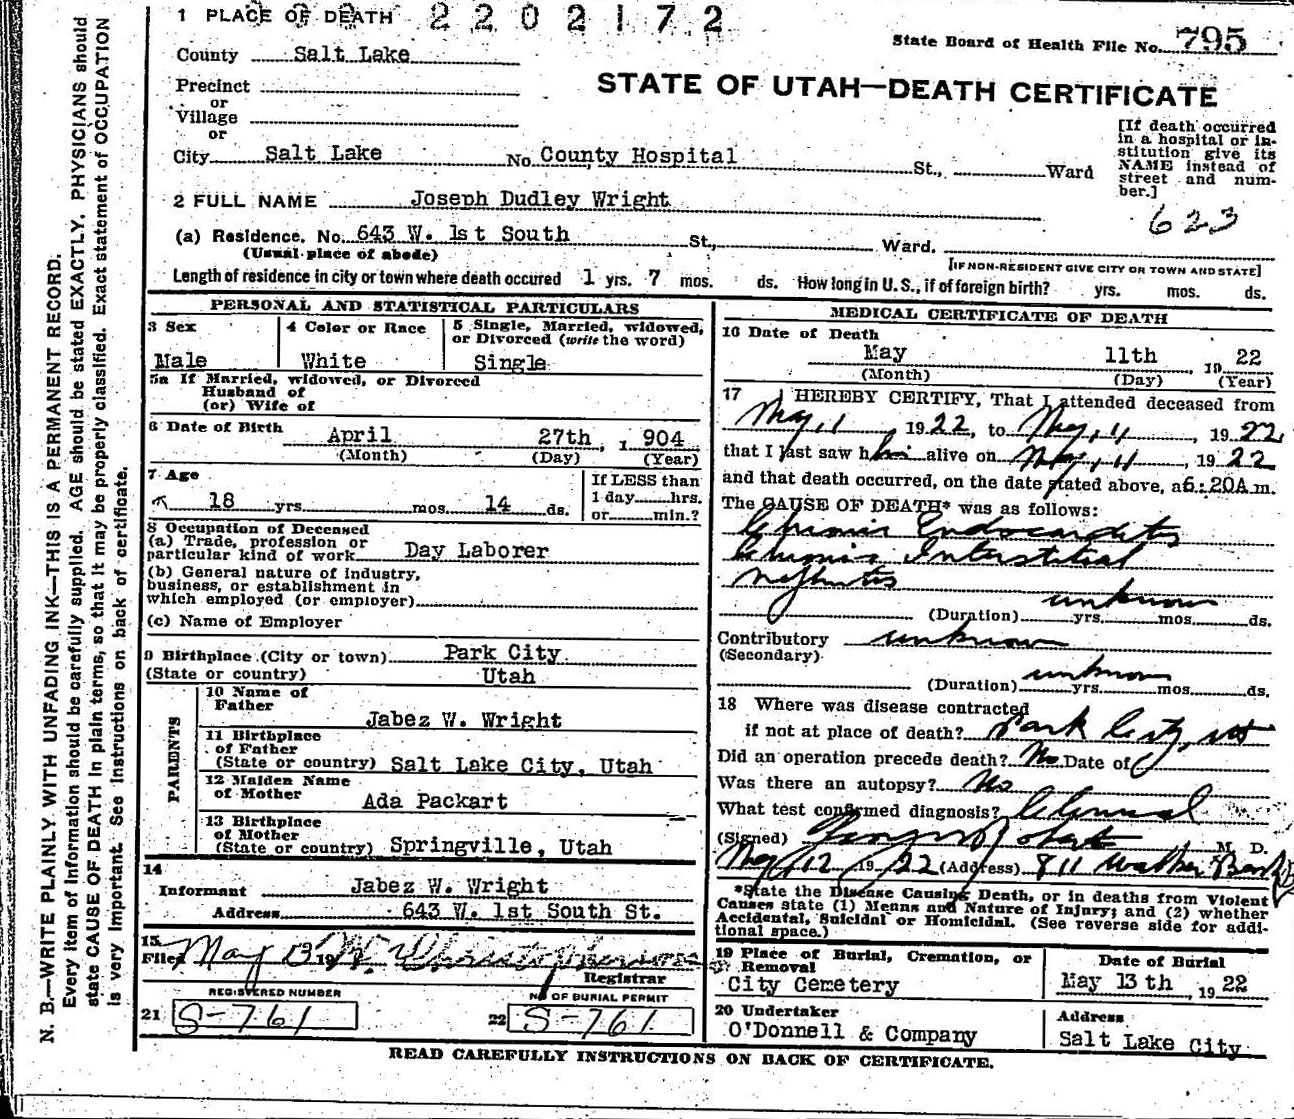 N. B.—WRITE PLAINLY WITH UNFADING INK—THIS IS A PERMANENT RECORD.
Every item of information should be carefully supplied. AGE should be stated EXACTLY. PHYSICIANS should
state CAUSE OF DEATH in plain terms, so that it may be properly classified. Exact statement of OCCUPATION
is very important. See instructions on back of certificate.
1 PLACE OF DEATH 2202172
State Board of Health File No. 795
County Salt Lake
STATE OF UTAH—DEATH CERTIFICATE
Precinct
or
Village
or
City Salt Lake No. County Hospital St., Ward
[If death occurred
in a hospital or in-
stitution give its
NAME instead of
street and num-
ber.]
623
2 FULL NAME Joseph Dudley Wright
(a) Residence. No. 643 W. 1st South St., Ward.
(Usual place of abode) [IF NON-RESIDENT GIVE CITY OR TOWN AND STATE]
Length of residence in city or town where death occured 1 yrs. 7 mos. ds. How long in U. S., if of foreign birth? yrs. mos. ds.
PERSONAL AND STATISTICAL PARTICULARS
3 Sex 4 Color or Race 5 Single, Married, widowed,
or Divorced (write the word)
Male White Single
5a If Married, widowed, or Divorced
Husband of
(or) Wife of
6 Date of Birth April 27th, 1904
(Month) (Day) (Year)
7 Age
18 yrs. mos. 14 ds.
If LESS than
1 day hrs.
or min.?
8 Occupation of Deceased
(a) Trade, profession or
particular kind of work Day Laborer
(b) General nature of industry,
business, or establishment in
which employed (or employer)
(c) Name of Employer
9 Birthplace (City or town) Park City
(State or country) Utah
PARENTS
10 Name of
Father Jabez W. Wright
11 Birthplace
of Father
(State or country) Salt Lake City, Utah
12 Maiden Name
of Mother Ada Packart
13 Birthplace
of Mother
(State or country) Springville, Utah
14
Informant Jabez W. Wright
Address 643 W. 1st South St.
15
Filed May 13 19 Christopherson
Registrar
REGISTERED NUMBER No OF BURIAL PERMIT
21 S-761 22 S-761
MEDICAL CERTIFICATE OF DEATH
16 Date of Death
May 11th 19 22
(Month) (Day) (Year)
17 I HEREBY CERTIFY, That I attended deceased from
May, 1, 1922, to May, 11, 1922
that I last saw him alive on May, 11, 1922
and that death occurred, on the date stated above, at 6:20A m.
The CAUSE OF DEATH* was as follows:
Chronic Endocarditis
Chronic Interstitial
Nephritis
unknown
(Duration) yrs. mos. ds.
Contributory unknown
(Secondary)
unknown
(Duration) yrs. mos. ds.
18 Where was disease contracted
if not at place of death? Park City, Ut
Did an operation precede death? No Date of
Was there an autopsy? No
What test confirmed diagnosis? Clinical
(Signed) M. D.
May 12 1922 (Address) 811 Walker Bank
*State the Disease Causing Death, or in deaths from Violent
Causes state (1) Means and Nature of Injury; and (2) whether
Accidental, Suicidal or Homicidal. (See reverse side for addi-
tional space.)
19 Place of Burial, Cremation, or
Removal
City Cemetery
Date of Burial
May 13th, 1922
20 Undertaker
O'Donnell & Company
Address
Salt Lake City
READ CAREFULLY INSTRUCTIONS ON BACK OF CERTIFICATE.